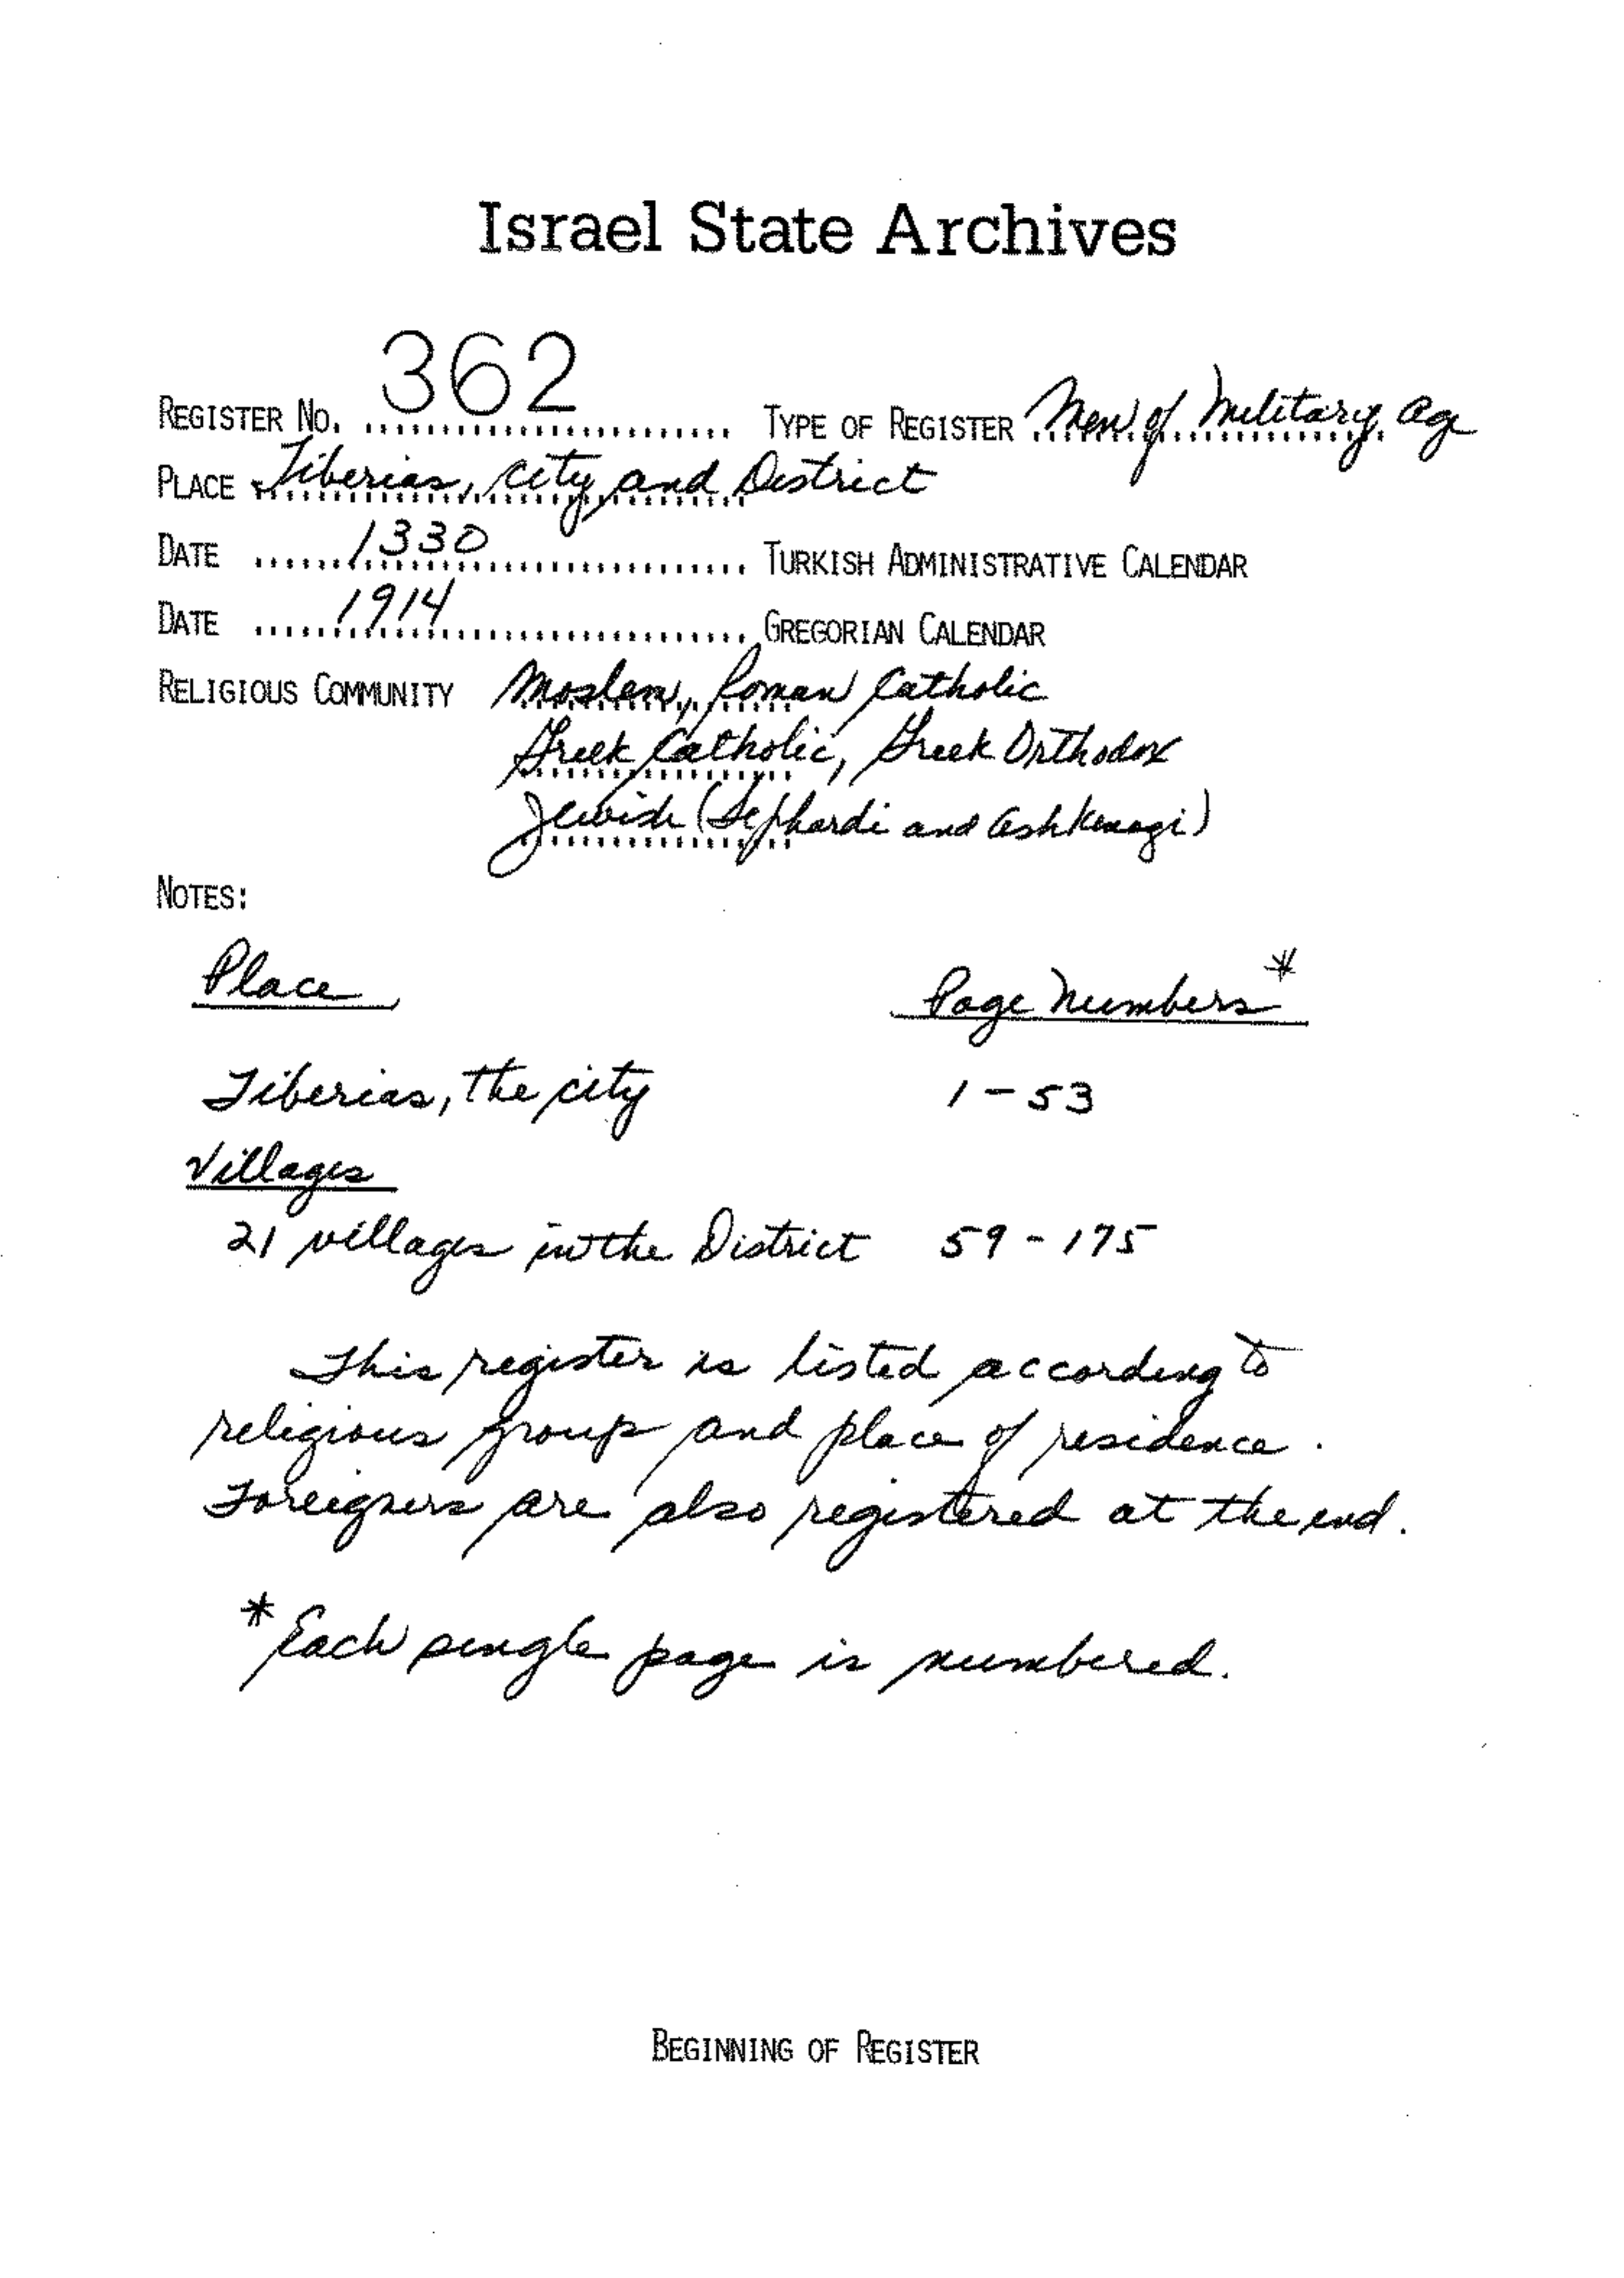 Israel State Archives
REGISTER NO. 362 TYPE OF REGISTER Men of Military Age
PLACE Tiberias, City and District
DATE 1330 TURKISH ADMINISTRATIVE CALENDAR
DATE 1914 GREGORIAN CALENDAR
RELIGIOUS COMMUNITY Moslem, Roman Catholic
Greek Catholic, Greek Orthodox
Jewish (Sephardi and Ashkenazi)
NOTES:
Place Page Numbers*
Tiberias, the city 1-53
Villages
21 villages in the District 59-175
This register is listed according to
religious group and place of residence.
Foreigners are also registered at the end.
*Each single page is numbered.
BEGINNING OF REGISTER